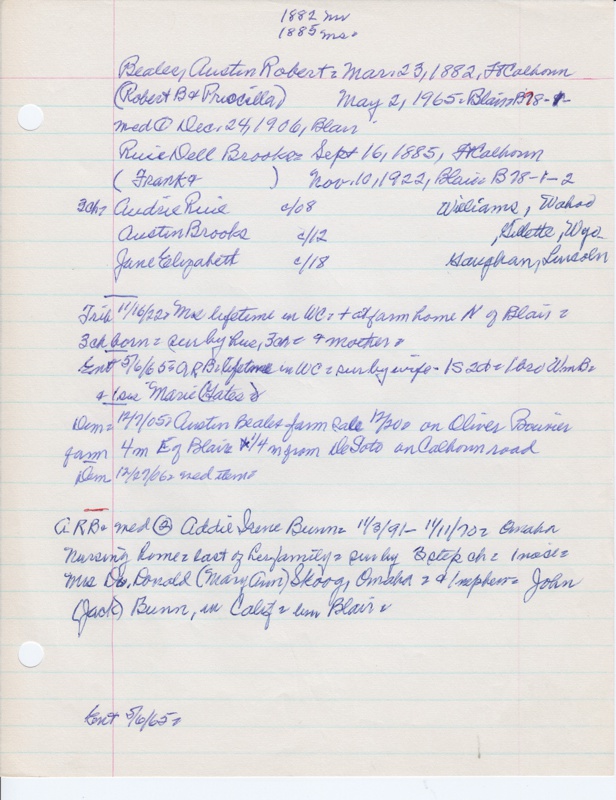 1882 mr
1885 ms.
Beales, Austin Robert = Mar. 23, 1882, Ft Calhoun
(Robert B & Priscilla) May 2, 1965 = Blair B78-1-
med ① Dec. 24, 1906, Blair
Rusie Dell Brooks = Sept 16, 1885, Ft Calhoun
(Frank & ) Nov. 10, 1922, Blair = B78-1-2
3ch = Audrie Rusie c/08 Williams, Wahoo
Austin Brooks c/12 , Gillette, Wyo
Jane Elizabeth c/18 Gaughan, Lincoln
Trib 11/16/22 = Mrs lifetime in WC = + at farm home N of Blair =
3ch born = sur by hus, 3ch = & mother =
Ent 5/6/65 = ARB = lifetime in WC = sur by wife - 1S 2d = 1bro Wm B =
& 1sis Marie (Gates) =
Dem = 12/7/05 = Austin Beales farm sale 12/20 = on Oliver Bouvier
farm 4 m E of Blair & 1/4 m from DeSoto on Calhoun road
Dem 12/27/06 = med item =
A.R.B. = med ② Addie Irene Bunn = 11/3/91 - 11/11/70 = Omaha
Nursing home = last of her family = sur by 3 step ch = 1 niece =
Mrs Donald (Mary Ann) Skoog, Omaha = & 1 nephew = John
(Jack) Bunn, in Calif = bur Blair =
Ent 5/6/65 =